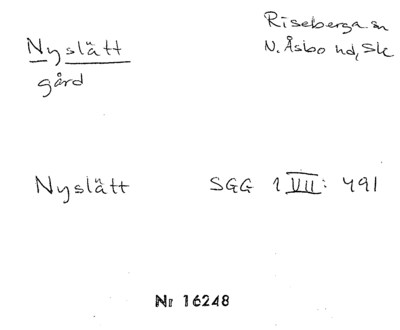 Nyslätt
gård
Riseberga sn
N. Åsbo hd, Sk
Nyslätt SGG 1 VII: 491
Nr 16248